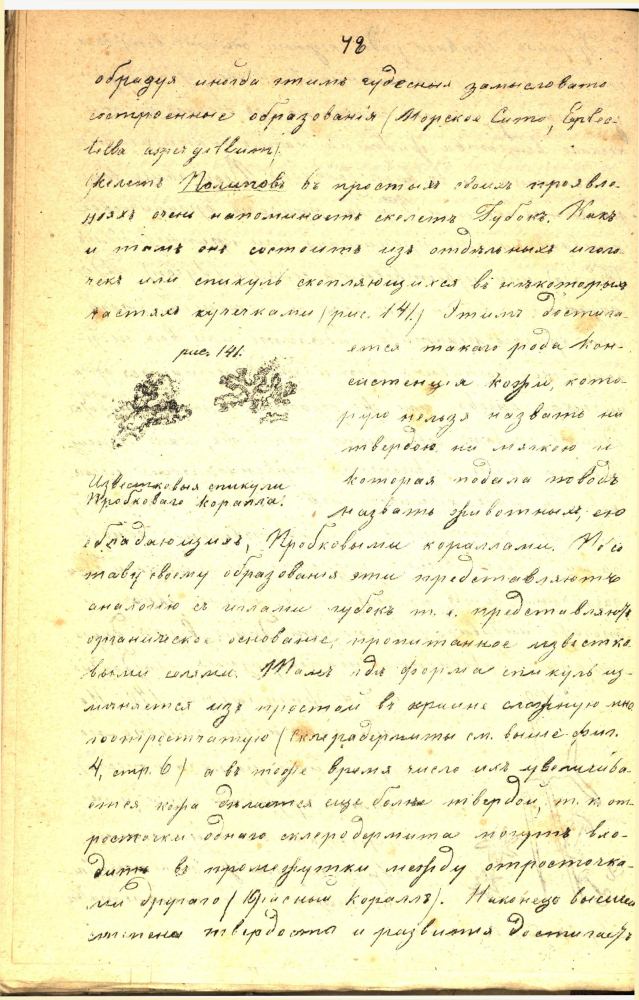 48
образуя иногда этимъ чудесныя замысловато
состроенные образования (Морское Сито, Euplec-
tella aspergillum)
Скелетъ Полиповъ въ простыхъ своихъ проявле-
нияхъ очень напоминаетъ скелетъ Губокъ. Какъ
и тамъ онъ состоитъ изъ отдѣльныхъ иголо-
чекъ или спикулъ скопляющихся въ нѣкоторыхъ
частяхъ кучечками (рис. 141) Этимъ достига-
рис. 141.
Известковыя спикули
Пробковаго Коралла.
ется такаго рода кон-
систенция кожи, кото-
рую нельзя назвать ни
твердою ни мягкою и
которая подала поводъ
назвать животныхъ, ею
обладающихъ, Пробковыми кораллами. По со
ставу своему образования эти представляютъ
аналогию съ иглами губокъ т. е. представляютъ
органическое основание, пропитанное известко
выми солями. Тамъ гдѣ форма спикулъ из-
мѣняется изъ простой въ крайне сложную мно
гоотростчатую (Склеродермиты см. выше фиг.
4, стр. 6) а въ тоже время число ихъ увеличива
ется кожа дѣлается еще болѣе твердой, т. к. от
росточки однаго склеродермита могутъ вхо-
дить въ промежутки между отросточка-
ми другаго (Красный Кораллъ). Наконецъ высшей
степени твердости и развития достигаетъ